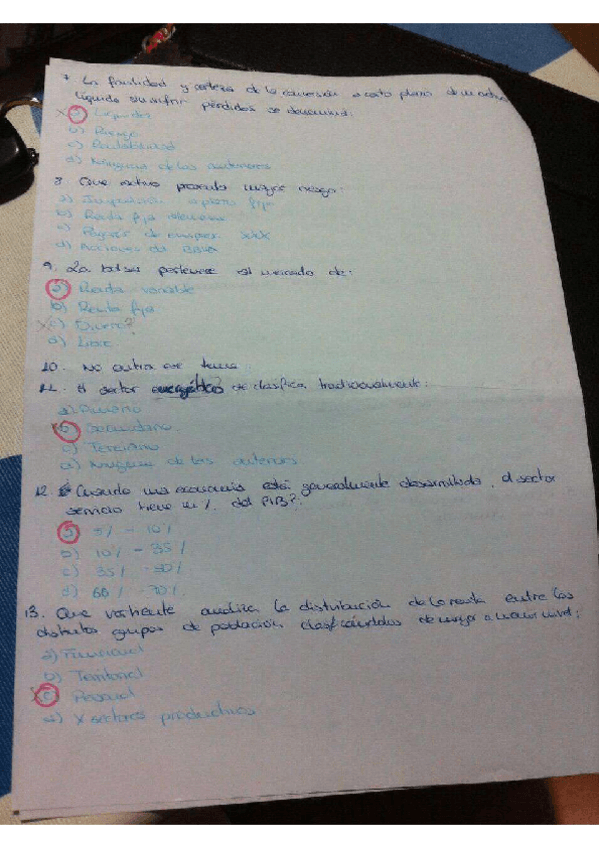 7 La facilidad y certeza de la conversión a corto plazo de un activo
líquido sin sufrir pérdidas se denomina:
a) Liquidez
b) Riesgo
c) Rentabilidad
d) Ninguna de las anteriores
8. Que activo presenta mayor riesgo:
a) Imposición a plazo fijo
b) Renta fija
c) Pagarés de empresa XXX
d) Acciones del BBVA
9. La bolsa pertenece al mercado de:
a) Renta variable
b) Renta fija
c) Dinero?
d) Libre
10. No entra ese tema
11. El sector energético se clasifica tradicionalmente:
a) Primario
b) Secundario
c) Terciario
d) Ninguna de las anteriores
12. Cuando una economía está generalmente desarrollada, el sector
servicio tiene un % del PIB?
a) 5% - 10%
b) 10% - 35%
c) 35% - 50%
d) 60% - 70%
13. Que vertiente analiza la distribución de la renta entre los
distintos grupos de población clasificándolos de mayor a menor nivel:
a) Funcional
b) Territorial
c) Personal
d) X sectores productivos